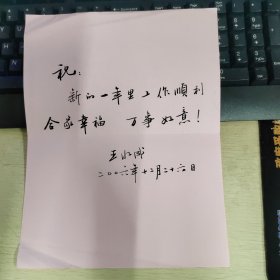 祝:
新的一年里工作順利
合家幸福 万事如意!
二〇〇六年十二月二十六日